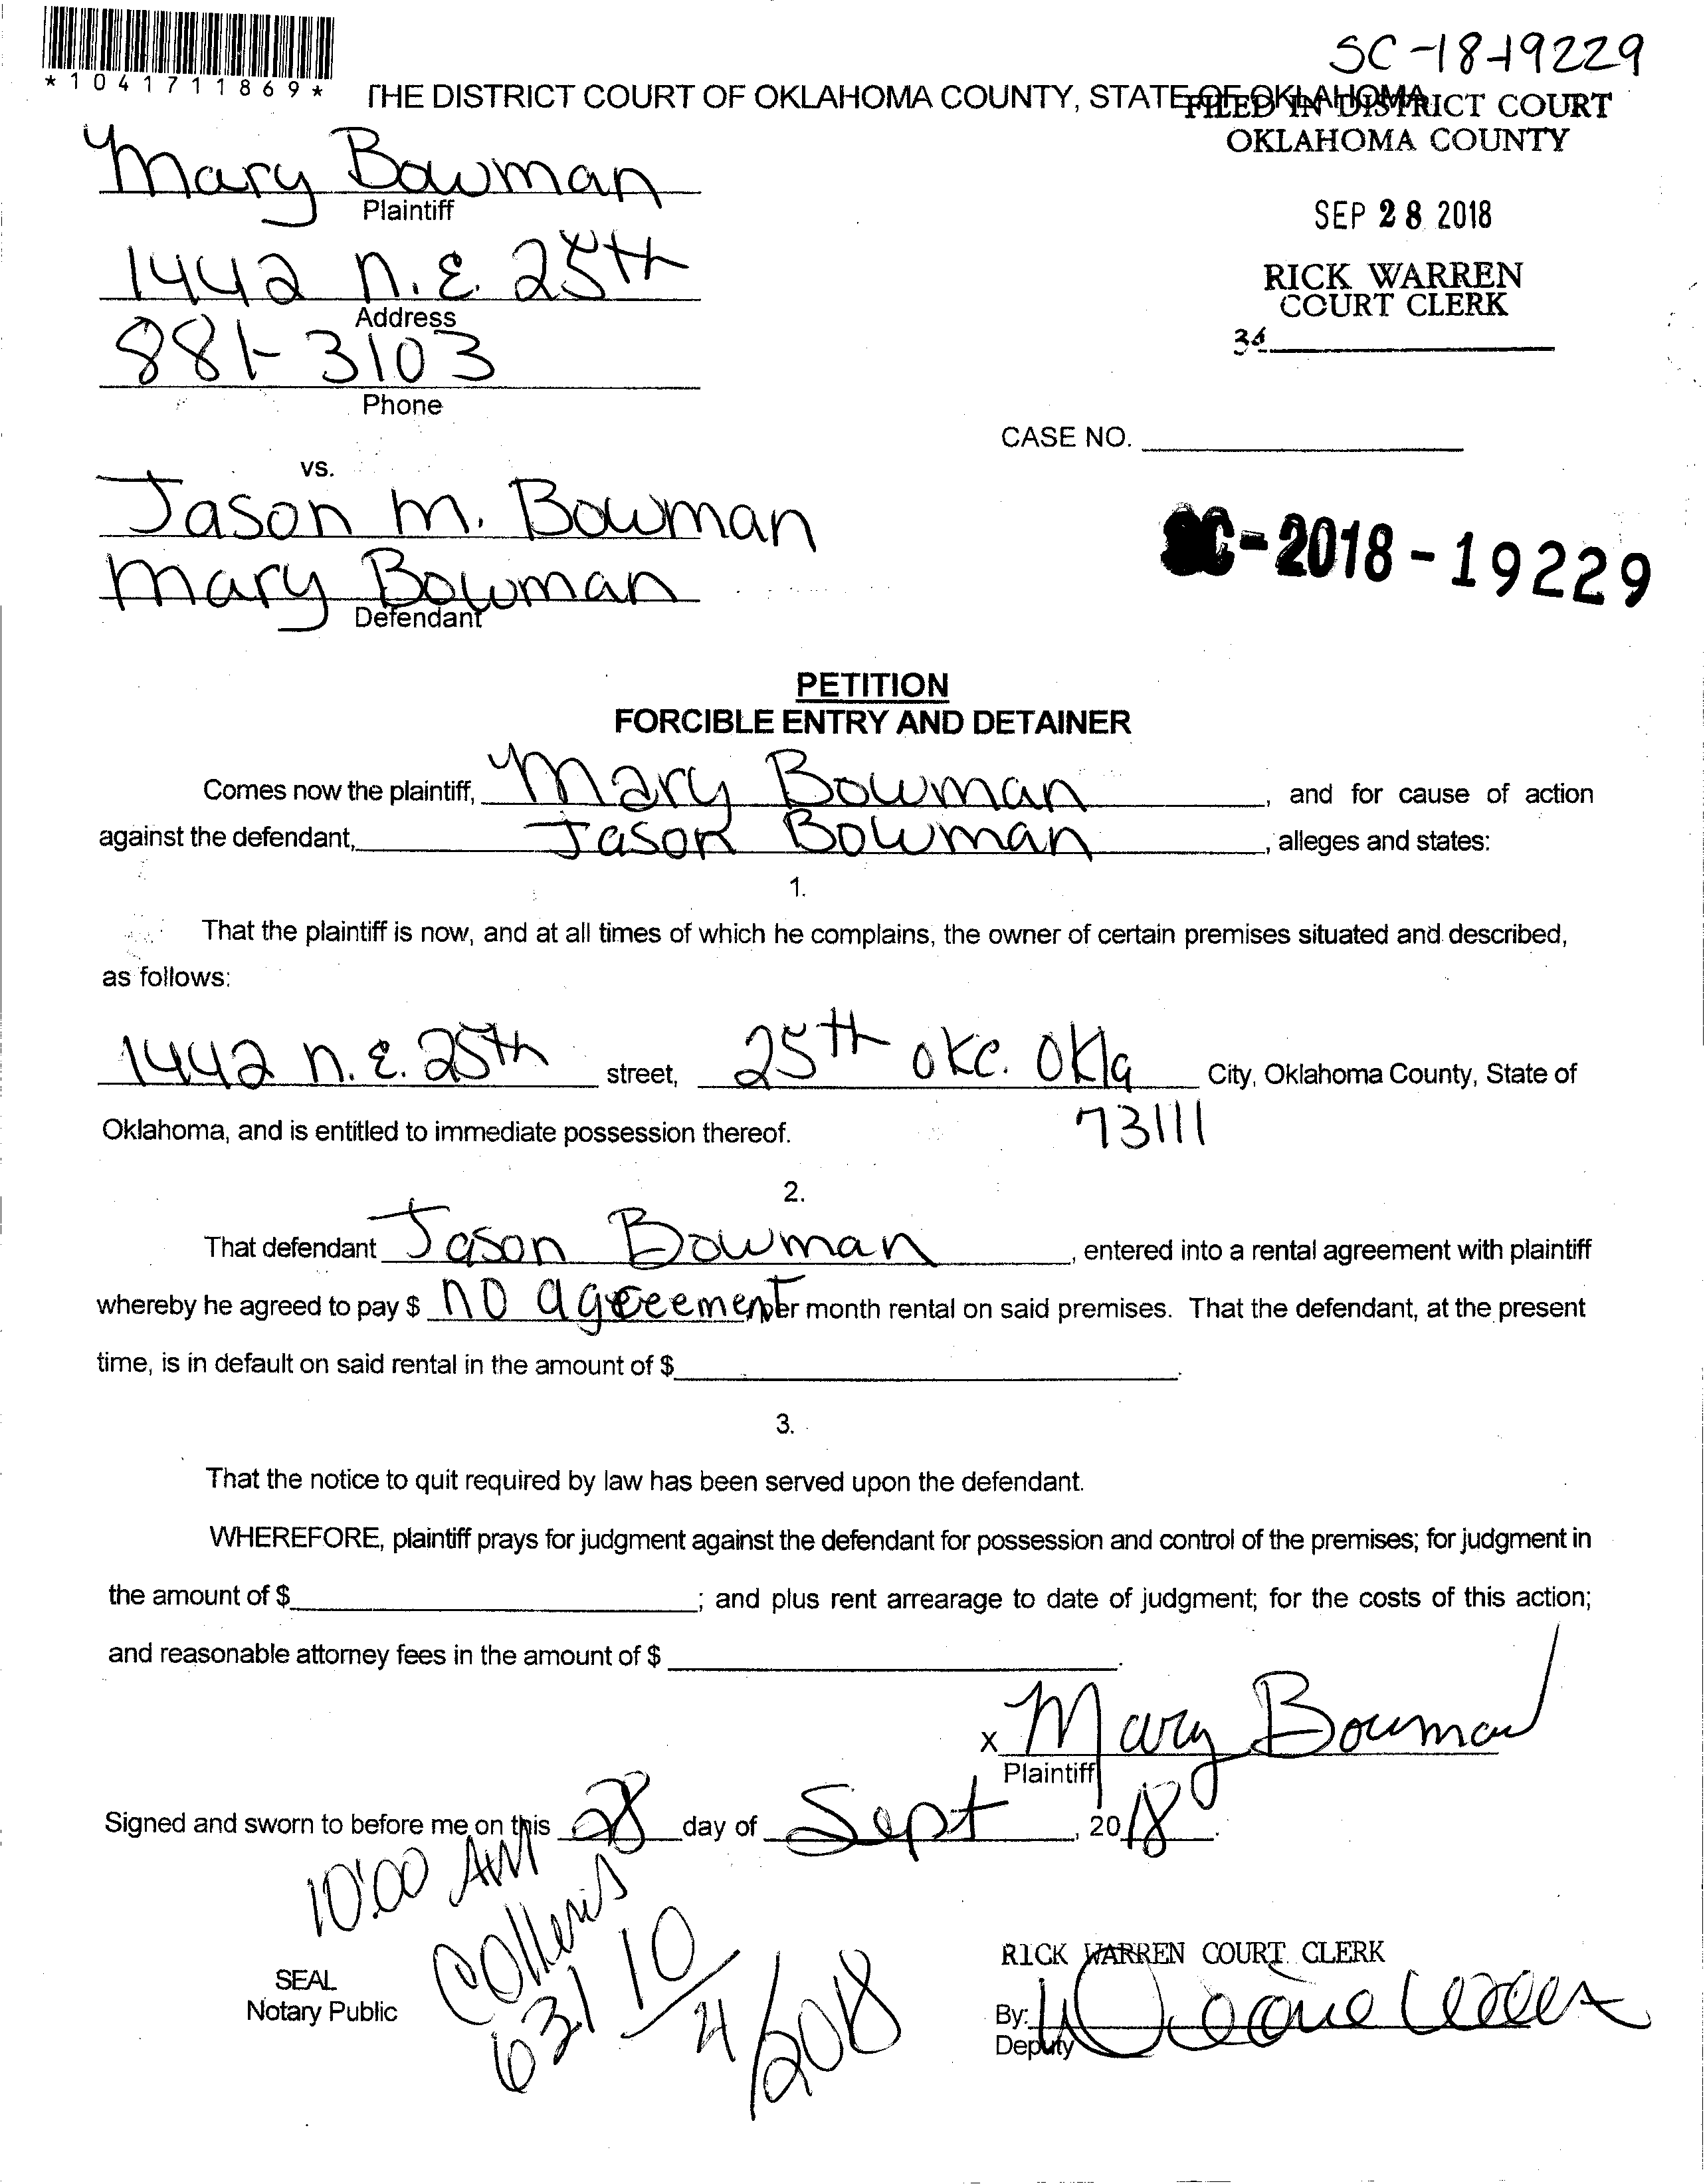 SC-18-19229
*1041711869*
THE DISTRICT COURT OF OKLAHOMA COUNTY, STATE OF OKLAHOMA
FILED IN DISTRICT COURT
OKLAHOMA COUNTY
Mary Bowman
Plaintiff
SEP 28 2018
1442 N.E. 25th
Address
RICK WARREN
COURT CLERK
881-3103
Phone
CASE NO.
vs.
Jason M. Bowman
SC-2018-19229
Mary Bowman
Defendant
PETITION
FORCIBLE ENTRY AND DETAINER
Comes now the plaintiff, Mary Bowman, and for cause of action
against the defendant, Jason Bowman, alleges and states:
1.
That the plaintiff is now, and at all times of which he complains, the owner of certain premises situated and described,
as follows:
1442 N.E. 25th street, 25th OKC. Okla City, Oklahoma County, State of
Oklahoma, and is entitled to immediate possession thereof. 73111
2.
That defendant Jason Bowman, entered into a rental agreement with plaintiff
whereby he agreed to pay $ no agreement per month rental on said premises. That the defendant, at the present
time, is in default on said rental in the amount of $
3.
That the notice to quit required by law has been served upon the defendant.
WHEREFORE, plaintiff prays for judgment against the defendant for possession and control of the premises; for judgment in
the amount of $ ; and plus rent arrearage to date of judgment; for the costs of this action;
and reasonable attorney fees in the amount of $ .
x Mary Bowman
Plaintiff
Signed and sworn to before me on this 28 day of Sept, 2018.
10:00 AM
631
10/4/2018
RICK WARREN COURT CLERK
SEAL
Notary Public
By:
Deputy